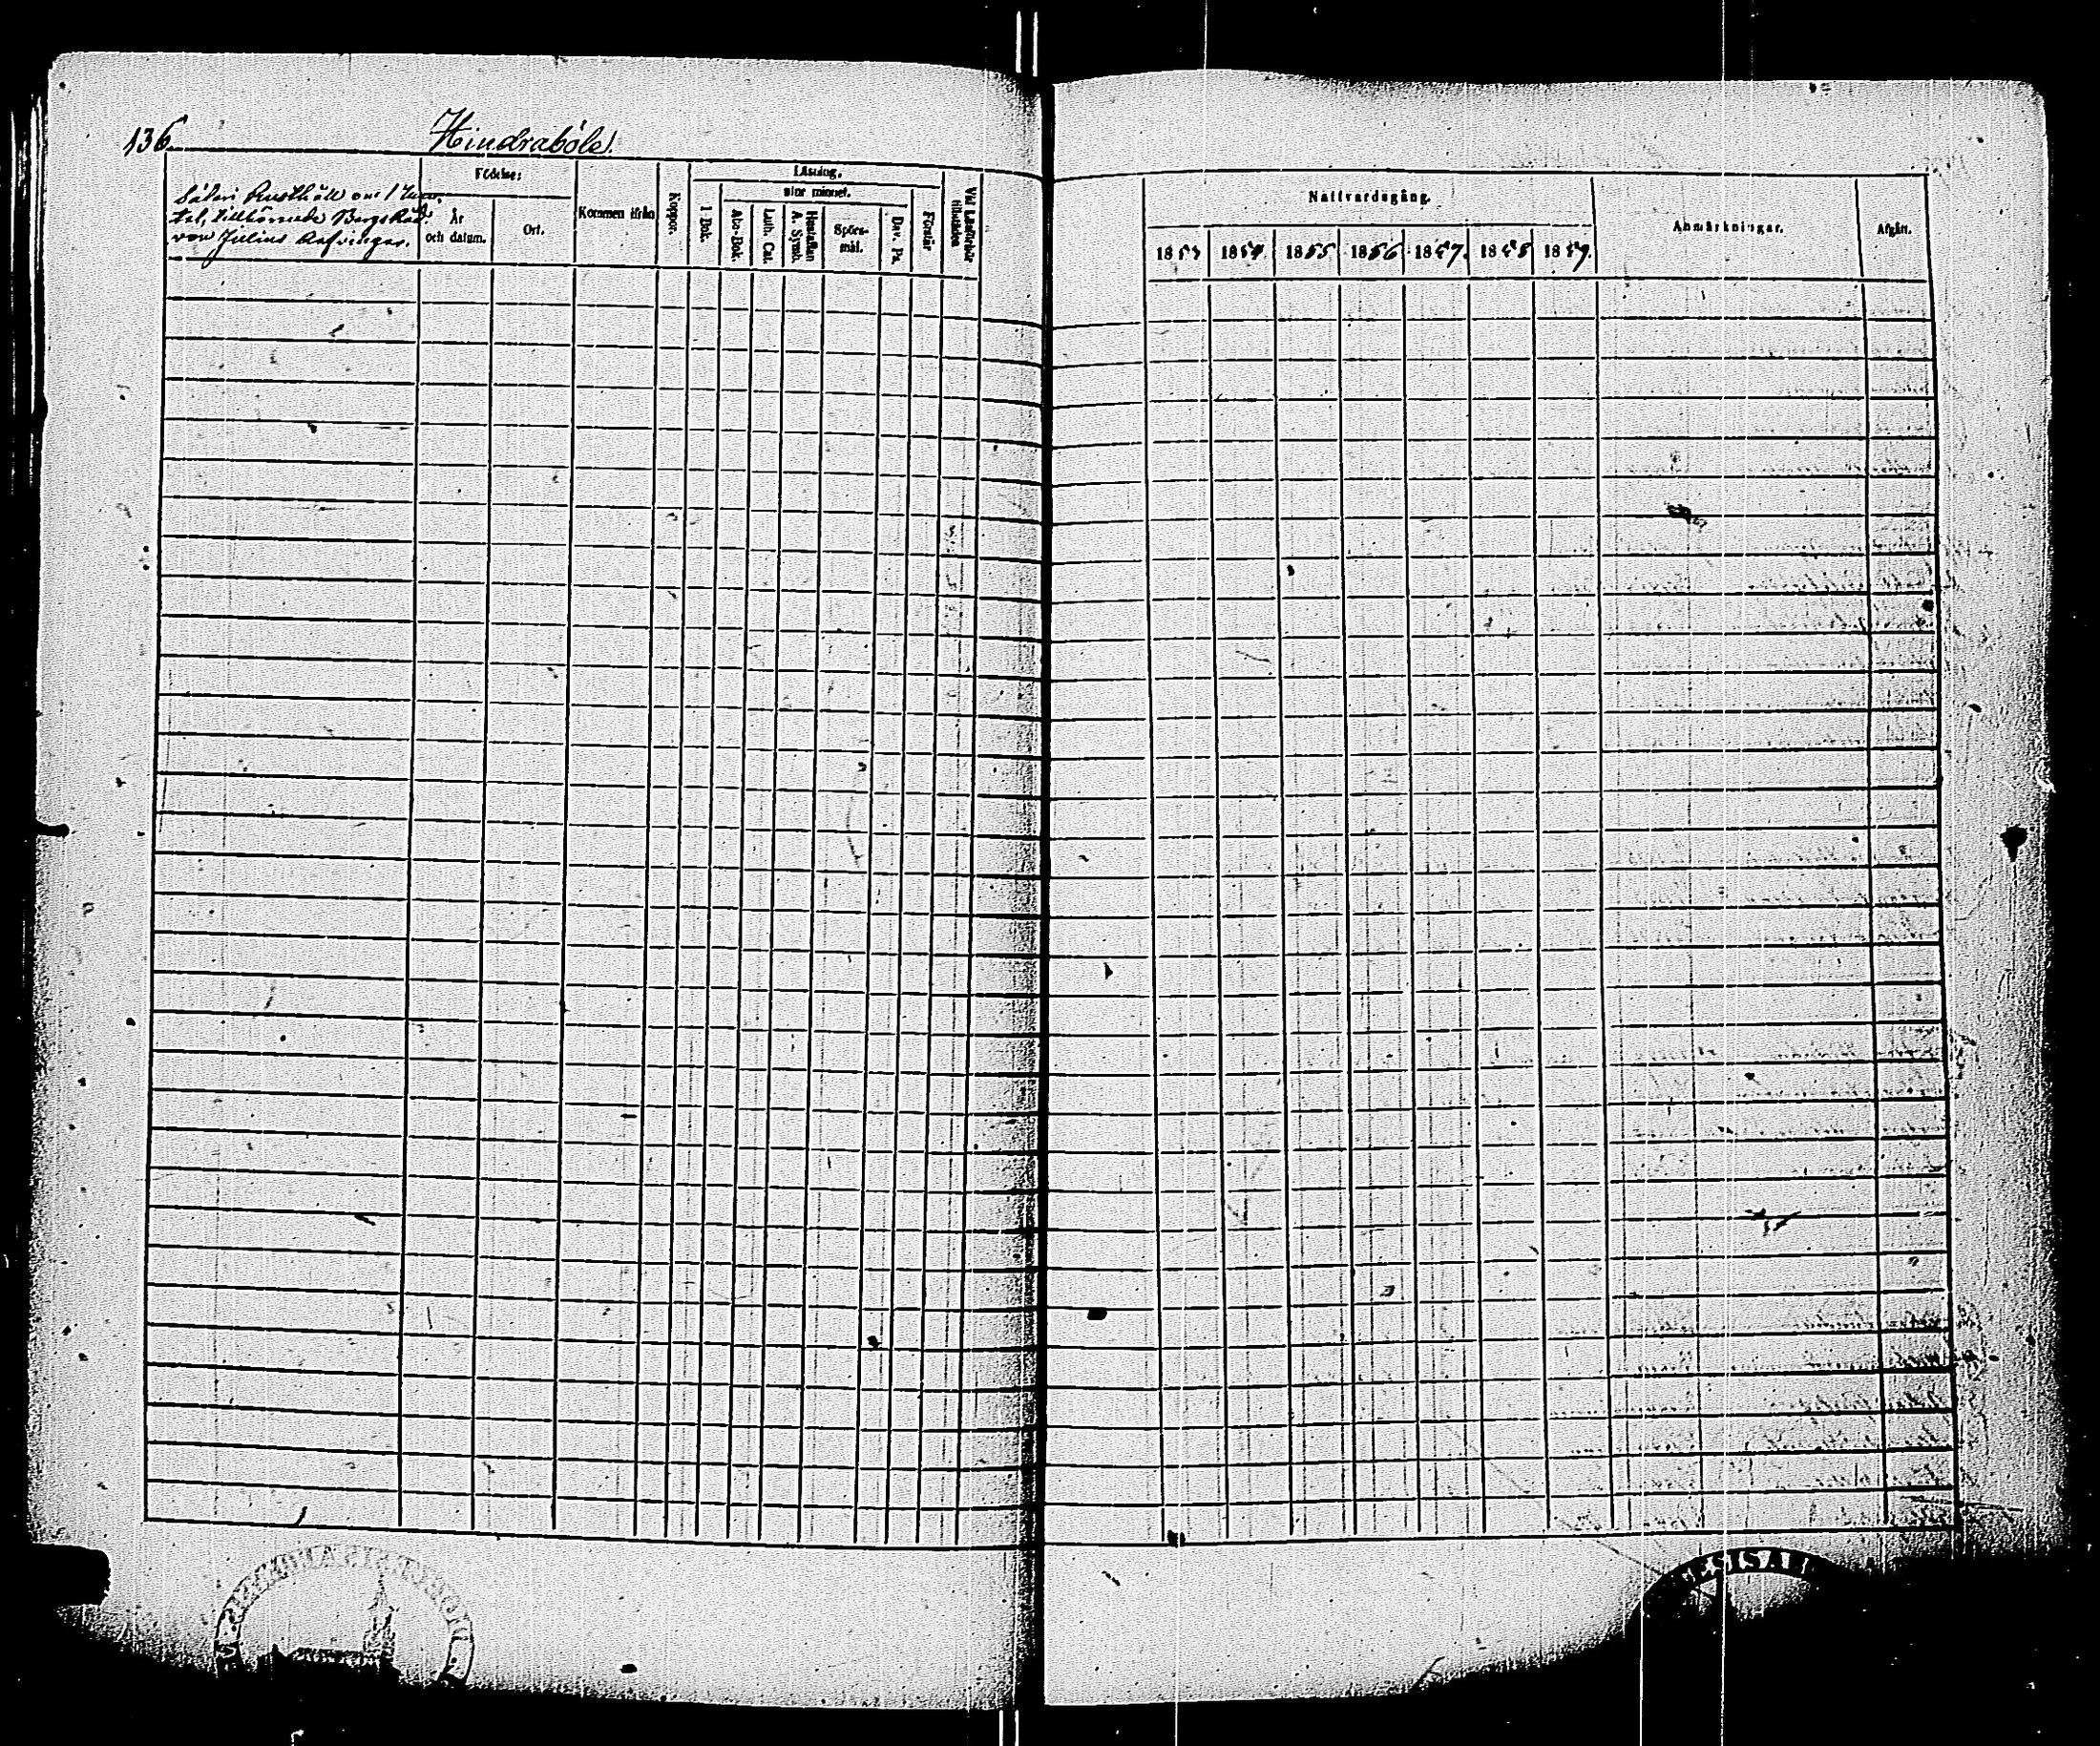 136.
Hindraböle.
Säteri Rusthåll om 1 Man-
tal, tillhörande Bergsråd.
von Julius
Födelse:
År
och datum.
Ort.
Kommen ifrån
Koppor.
Läsning.
I Bok.
utur minnet.
Abc-Bok.
Luth. Cat.
Hustaflan
A. Symb.
Spörs-
mål.
Dav. Ps.
Förstår
Vid Läsförhör
tillstädes
Nattvardsgång.
1853
1854.
1855
1856
1857.
1858
1859.
Anmärkningar.
Afgått.